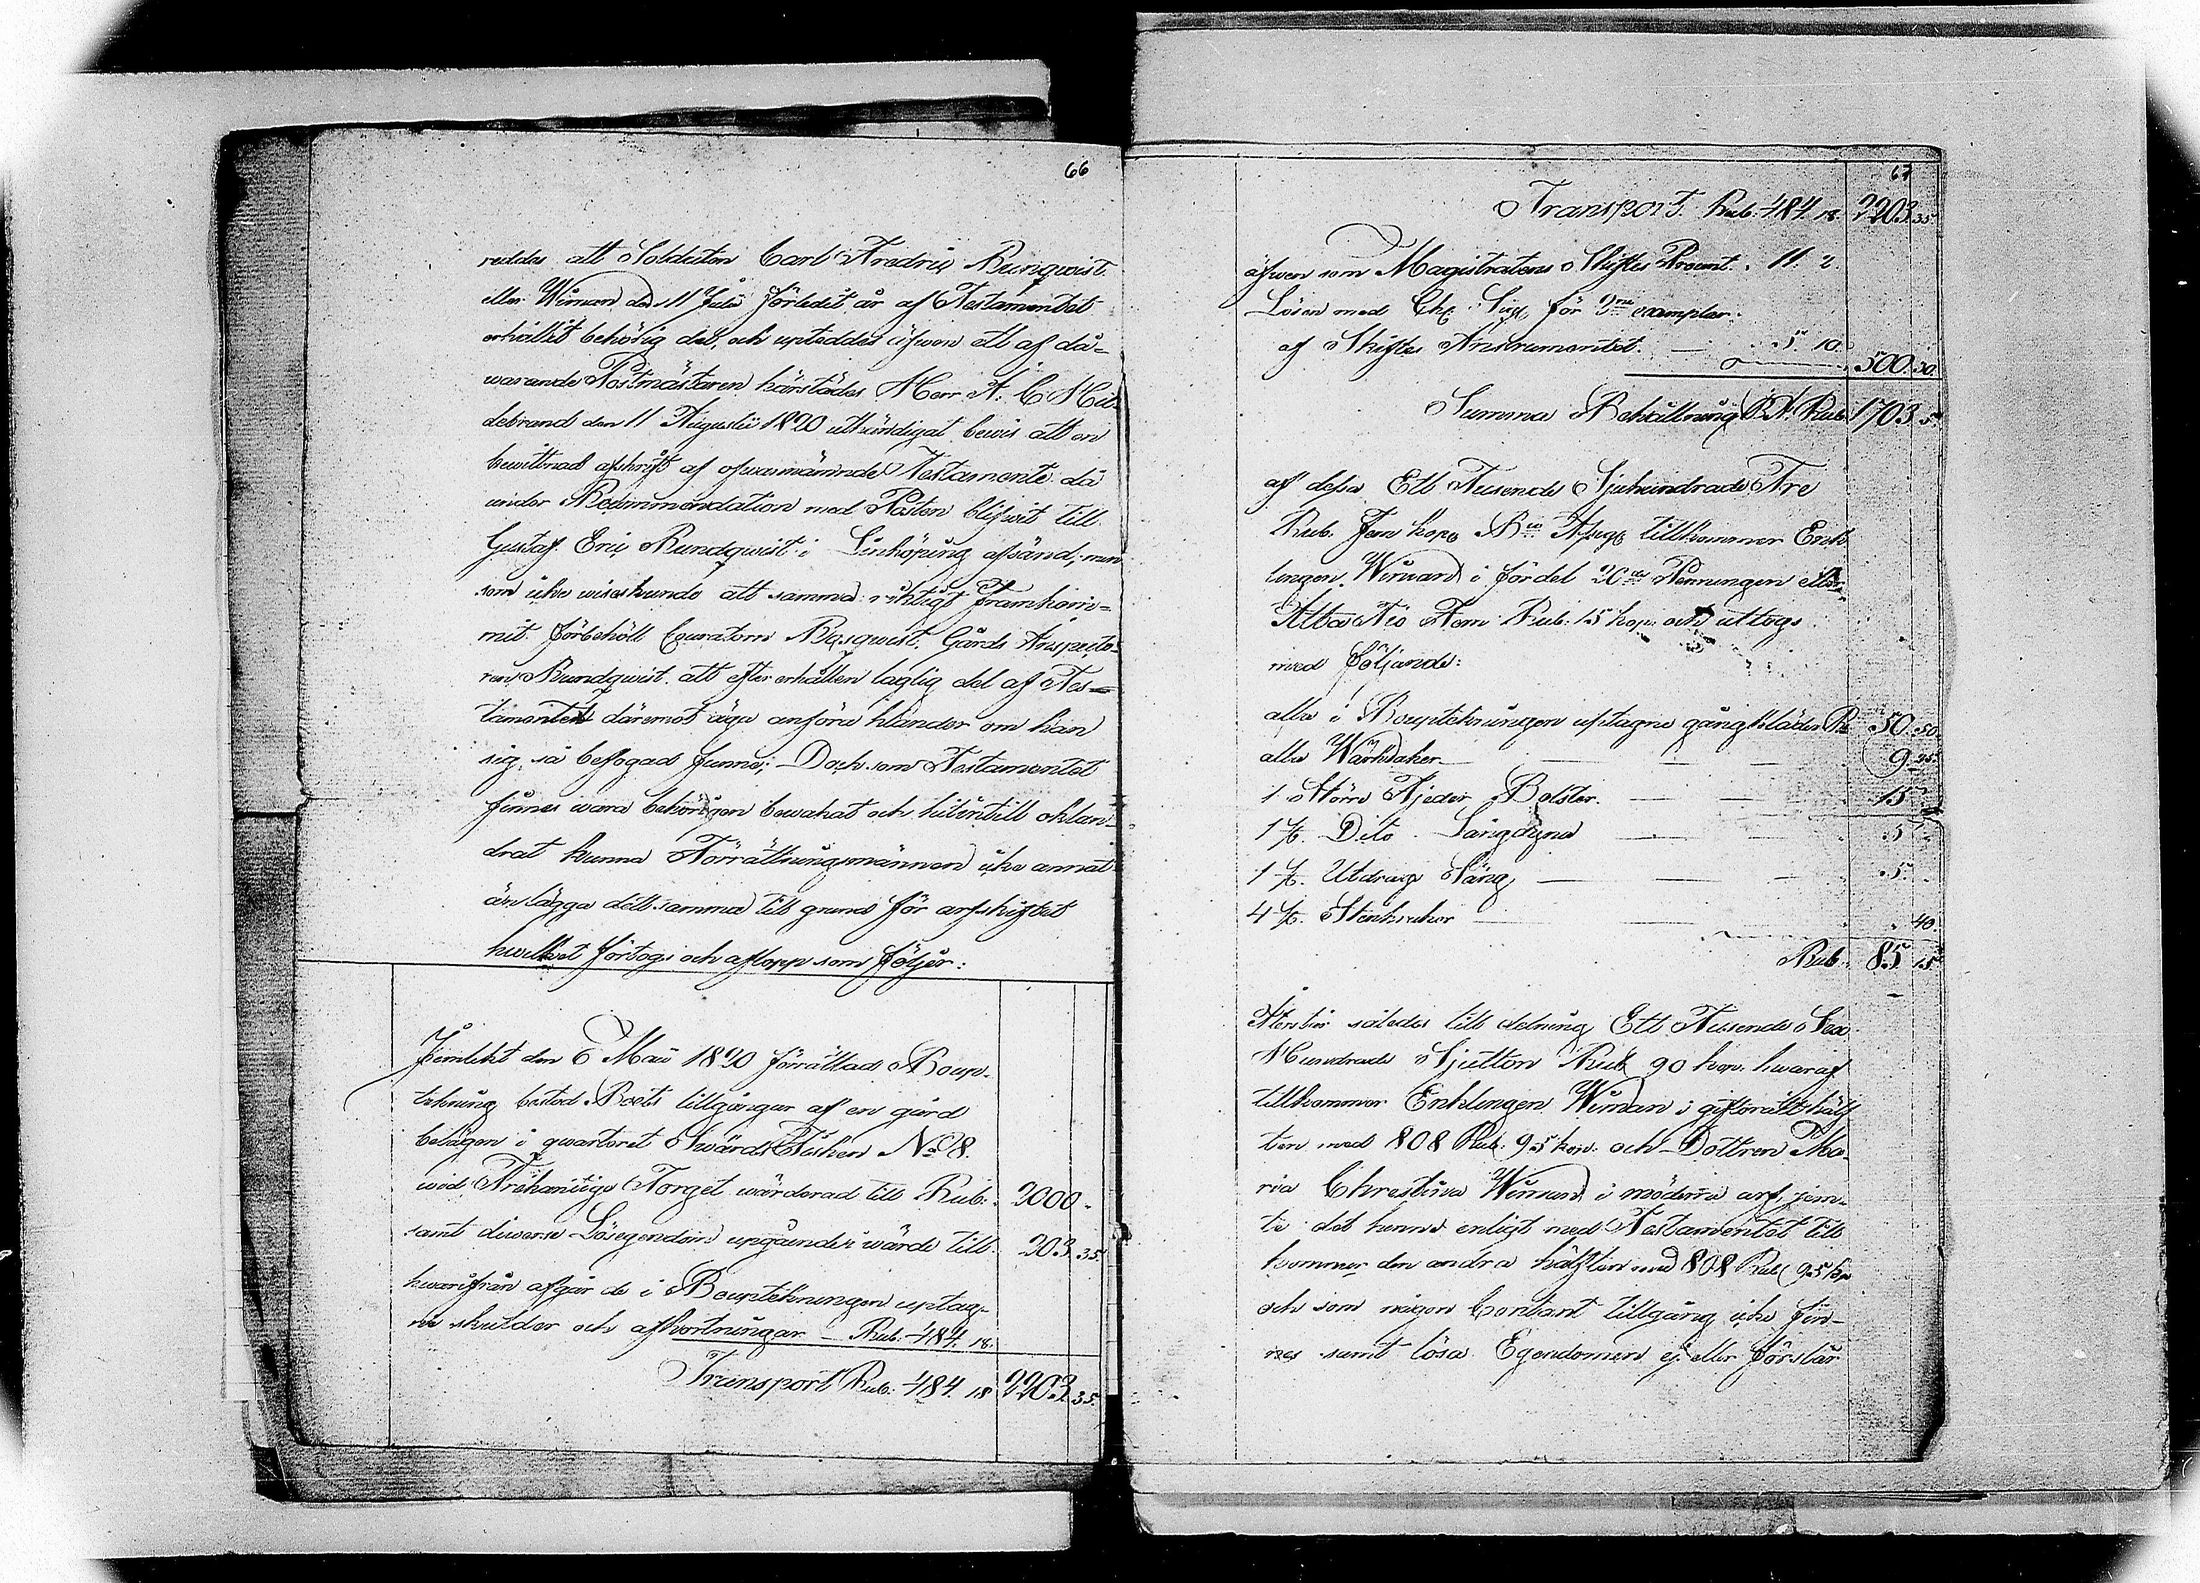 66
reddes att Soldaten Carl Fredric Runqwist
eller Wiman den 11 Julii förledit år af Testamentet
erhållit behörig del, och upteddes äfwen att af då=
warande Postmästaren härstädes Herr A. C. Hil=
debrand den 11 Augusti 1820 utfärdigat bewis att en
bewittnad afskrift af ofwannämnde Testamente då
under Recommendation med Posten blifwit till
Gustaf Eric Rundqwist i Linköping afsänd; men
som icke wiseskunde att samma riktigt framkom=
mit förbehöll Curatorn Gårds Inspecto=
ren Rundqwist att efter erhållen laglig del af Tes=
tamentet däremot äga anföra klander om han
sig så befogad funne; Dock som Testamentet
finnes wara behörigen bewakat och hitintill oklan=
drat kunna Förrättningsmännen icke annat
än lägga detsamma till grund för arfskiftet
hwilket förtogs och aflopp som följer:
Jemlikt den 6 Maii 1820 förrättad Boup=
tekning bestod Boets tillgångar af en gård
belägen i qwarteret Swärd Fisken No 8.
wid Trekantiga Torget wärderad till Rub. 2000.-
samt diwerse Lösegendom upgående i wärde till 203.35.
hwarifrån afgår de i Bouptekningen uptag=
ne skulder och afkortningar — Rub. 484. 18.
Transport Rub. 484. 18 2203.35.
67
Transport. Rub. 484. 18. 2203.35
äfwen som Magistratens Skiftes Procent. . 11. 2.
Lösen med Ch. Sigl. för 2ne exemplar
af Skiftes Instrumentet. — . 5. 10. 500.30
Summa Behållning B. A. Rub 1703.5.
af dessa Ett Tusende Sjuhundrade Tre
Rub. Fem kop. Bco Assign. tillkommer Enk=
lingen Wiman i fördel 20de Penningen eller
Åttatio Fem Rub. 15 kop. och uttogs
med följande:
alla i Bouptekningen uptagne gångkläder Rub 50.50
alla Wärksaker — — — 9.25
1 Större Fjeder Bolster. — — 15 -
1 st. Dito Sängdyna — — . 5 -
1 st. Utdrag Säng — — — . 5. .
4 st. Stenkrukor — . . 40.
Rub. 85. 15.
Återstår således till delning Ett Tusende Sex
Hundrade Sjutton Rub 90 kop. hwaraf
tillkommer Enklingen Wiman i giftorätt hälf
ten med 808 Rub. 95 kop. och Dottren Ma=
ria Christina Wiman i möderne arf, jem=
te det henne enligt med Testamentet till
kommer den andra hälften med 808 Rub 95 kop
och som någon Contant tillgång icke fin=
nes samt lösa Egendomen ej eller förslår